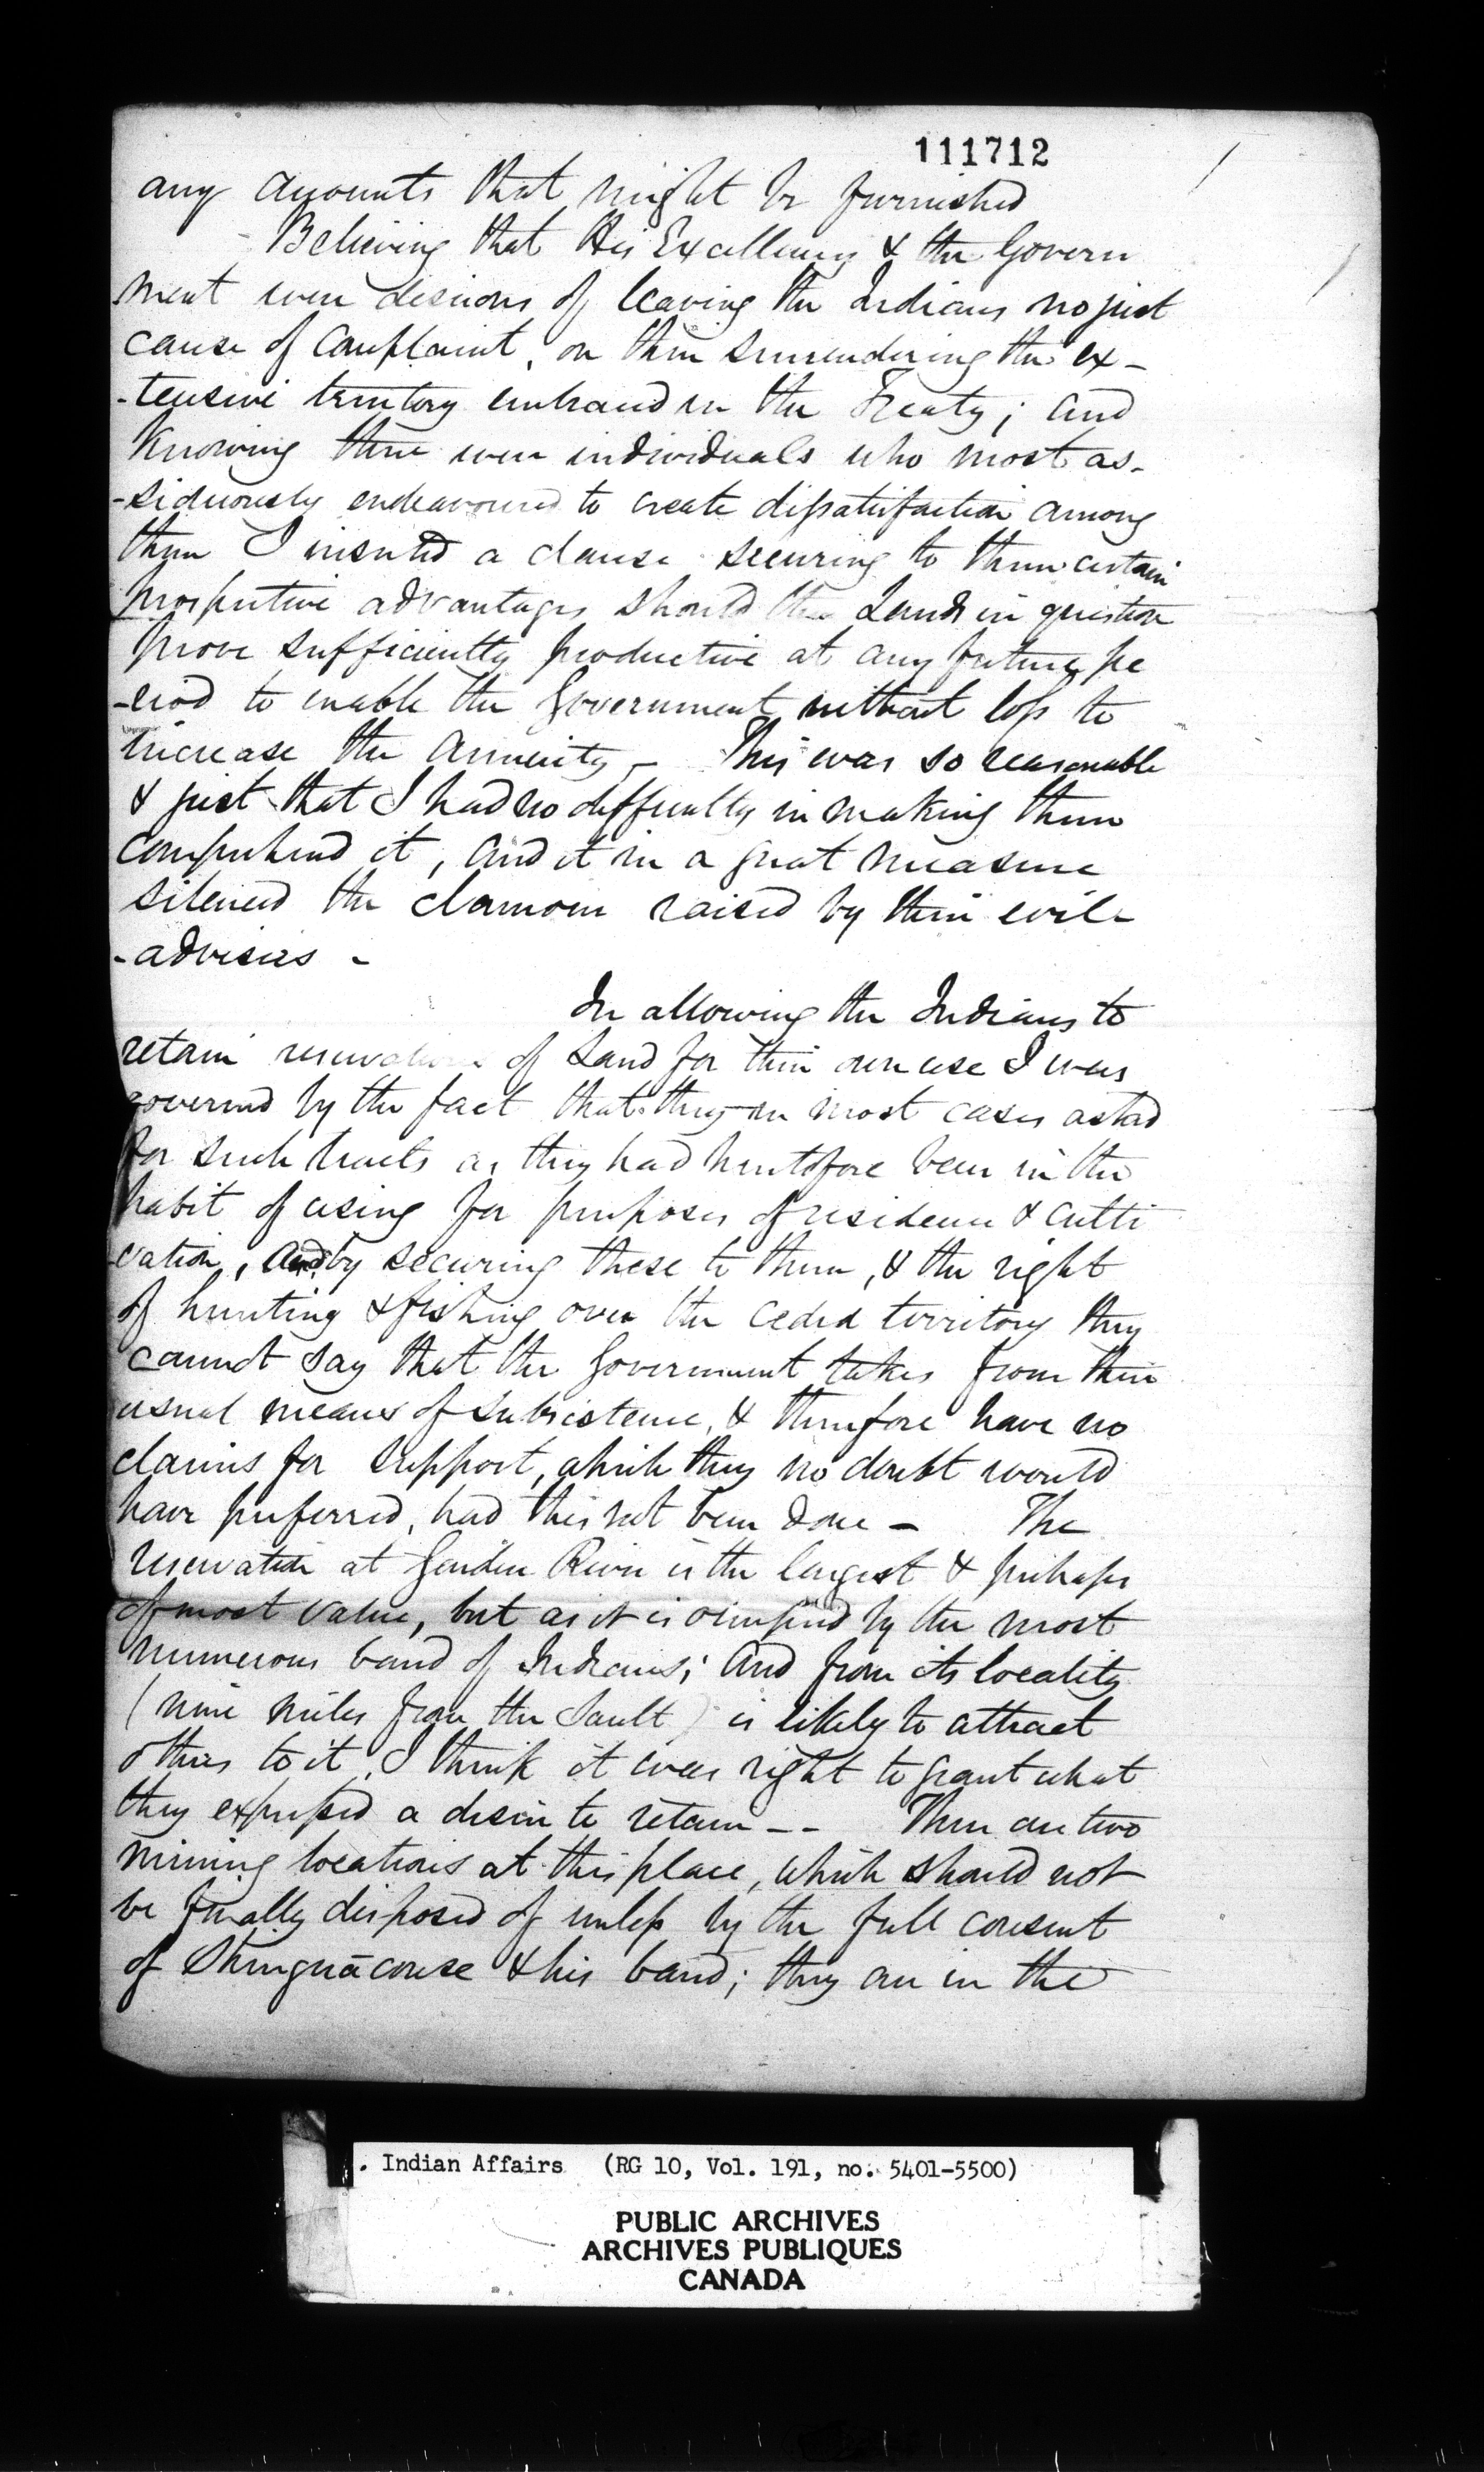 111712
any amounts that might be furnished
Believing that His Excellency & the Govern
ment were desirous of leaving the Indians no just
cause of complaint, on their surrendering the ex-
-tensive territory embraced in the Treaty; and
Knowing there were individuals who most as-
-siduously endeavoured to create dissatisfaction among
them I inserted a clause securing to them certain
prospective advantages should the Lands in question
prove sufficiently productive at any future pe
-riod to enable the Government without loss to
increase the annuity - This was so reasonable
& just that I had no difficulty in making them
comprehend it, and it in a great measure
silenced the clamour raised by their evil-
-advisers -
In allowing the Indians to
retain reservations of Land for their own use I was
governed by the fact that they in most cases asked
for such tracts as they had heretofore been in the
habit of using for purposes of residence & culti
vation, and by securing these to them, & the right
of hunting & fishing over the ceded territory they
cannot say that the Government takes from their
usual means of subsistence, & therefore have no
claims for support, which they no doubt would
have preferred, had this not been done - The
reservation at Garden River is the largest & perhaps
of most value, but as it is occupied by the most
numerous band of Indians; and from its locality
(nine miles from the Sault) is likely to attract
others to it, I think it was right to grant what
they expressed a desire to retain -- There are two
mining locations at this place, which should not
be finally disposed of unless by the full consent
of Shinguācouse & his band; they are in the
. Indian Affairs (RG 10, Vol. 191, no. 5401-5500)
PUBLIC ARCHIVES
ARCHIVES PUBLIQUES
CANADA